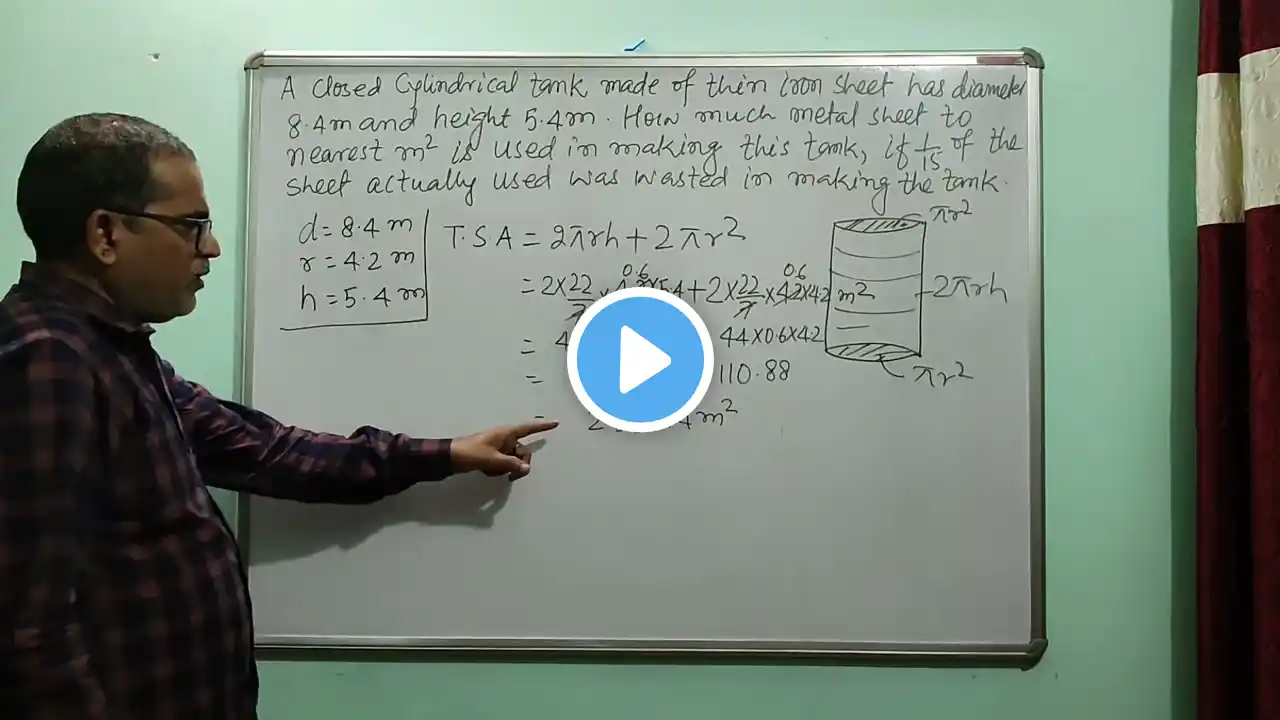 A closed Cylindrical tank made of thin iron sheet has diameter
8.4m and height 5.4m. How much metal sheet to
nearest m² is used in making this tank, if 1/15 of the
sheet actually used was wasted in making the tank.
d = 8.4 m
r = 4.2 m
h = 5.4 m
T.S A = 2πrh + 2πr²
= 2×22/7×4.2×5.4+2×22/7×4.2×4.2 m²
0.6 0.6
= 4 44×0.6×4.2
= 110.88
= 2 4 m²
πr²
2πrh
πr²